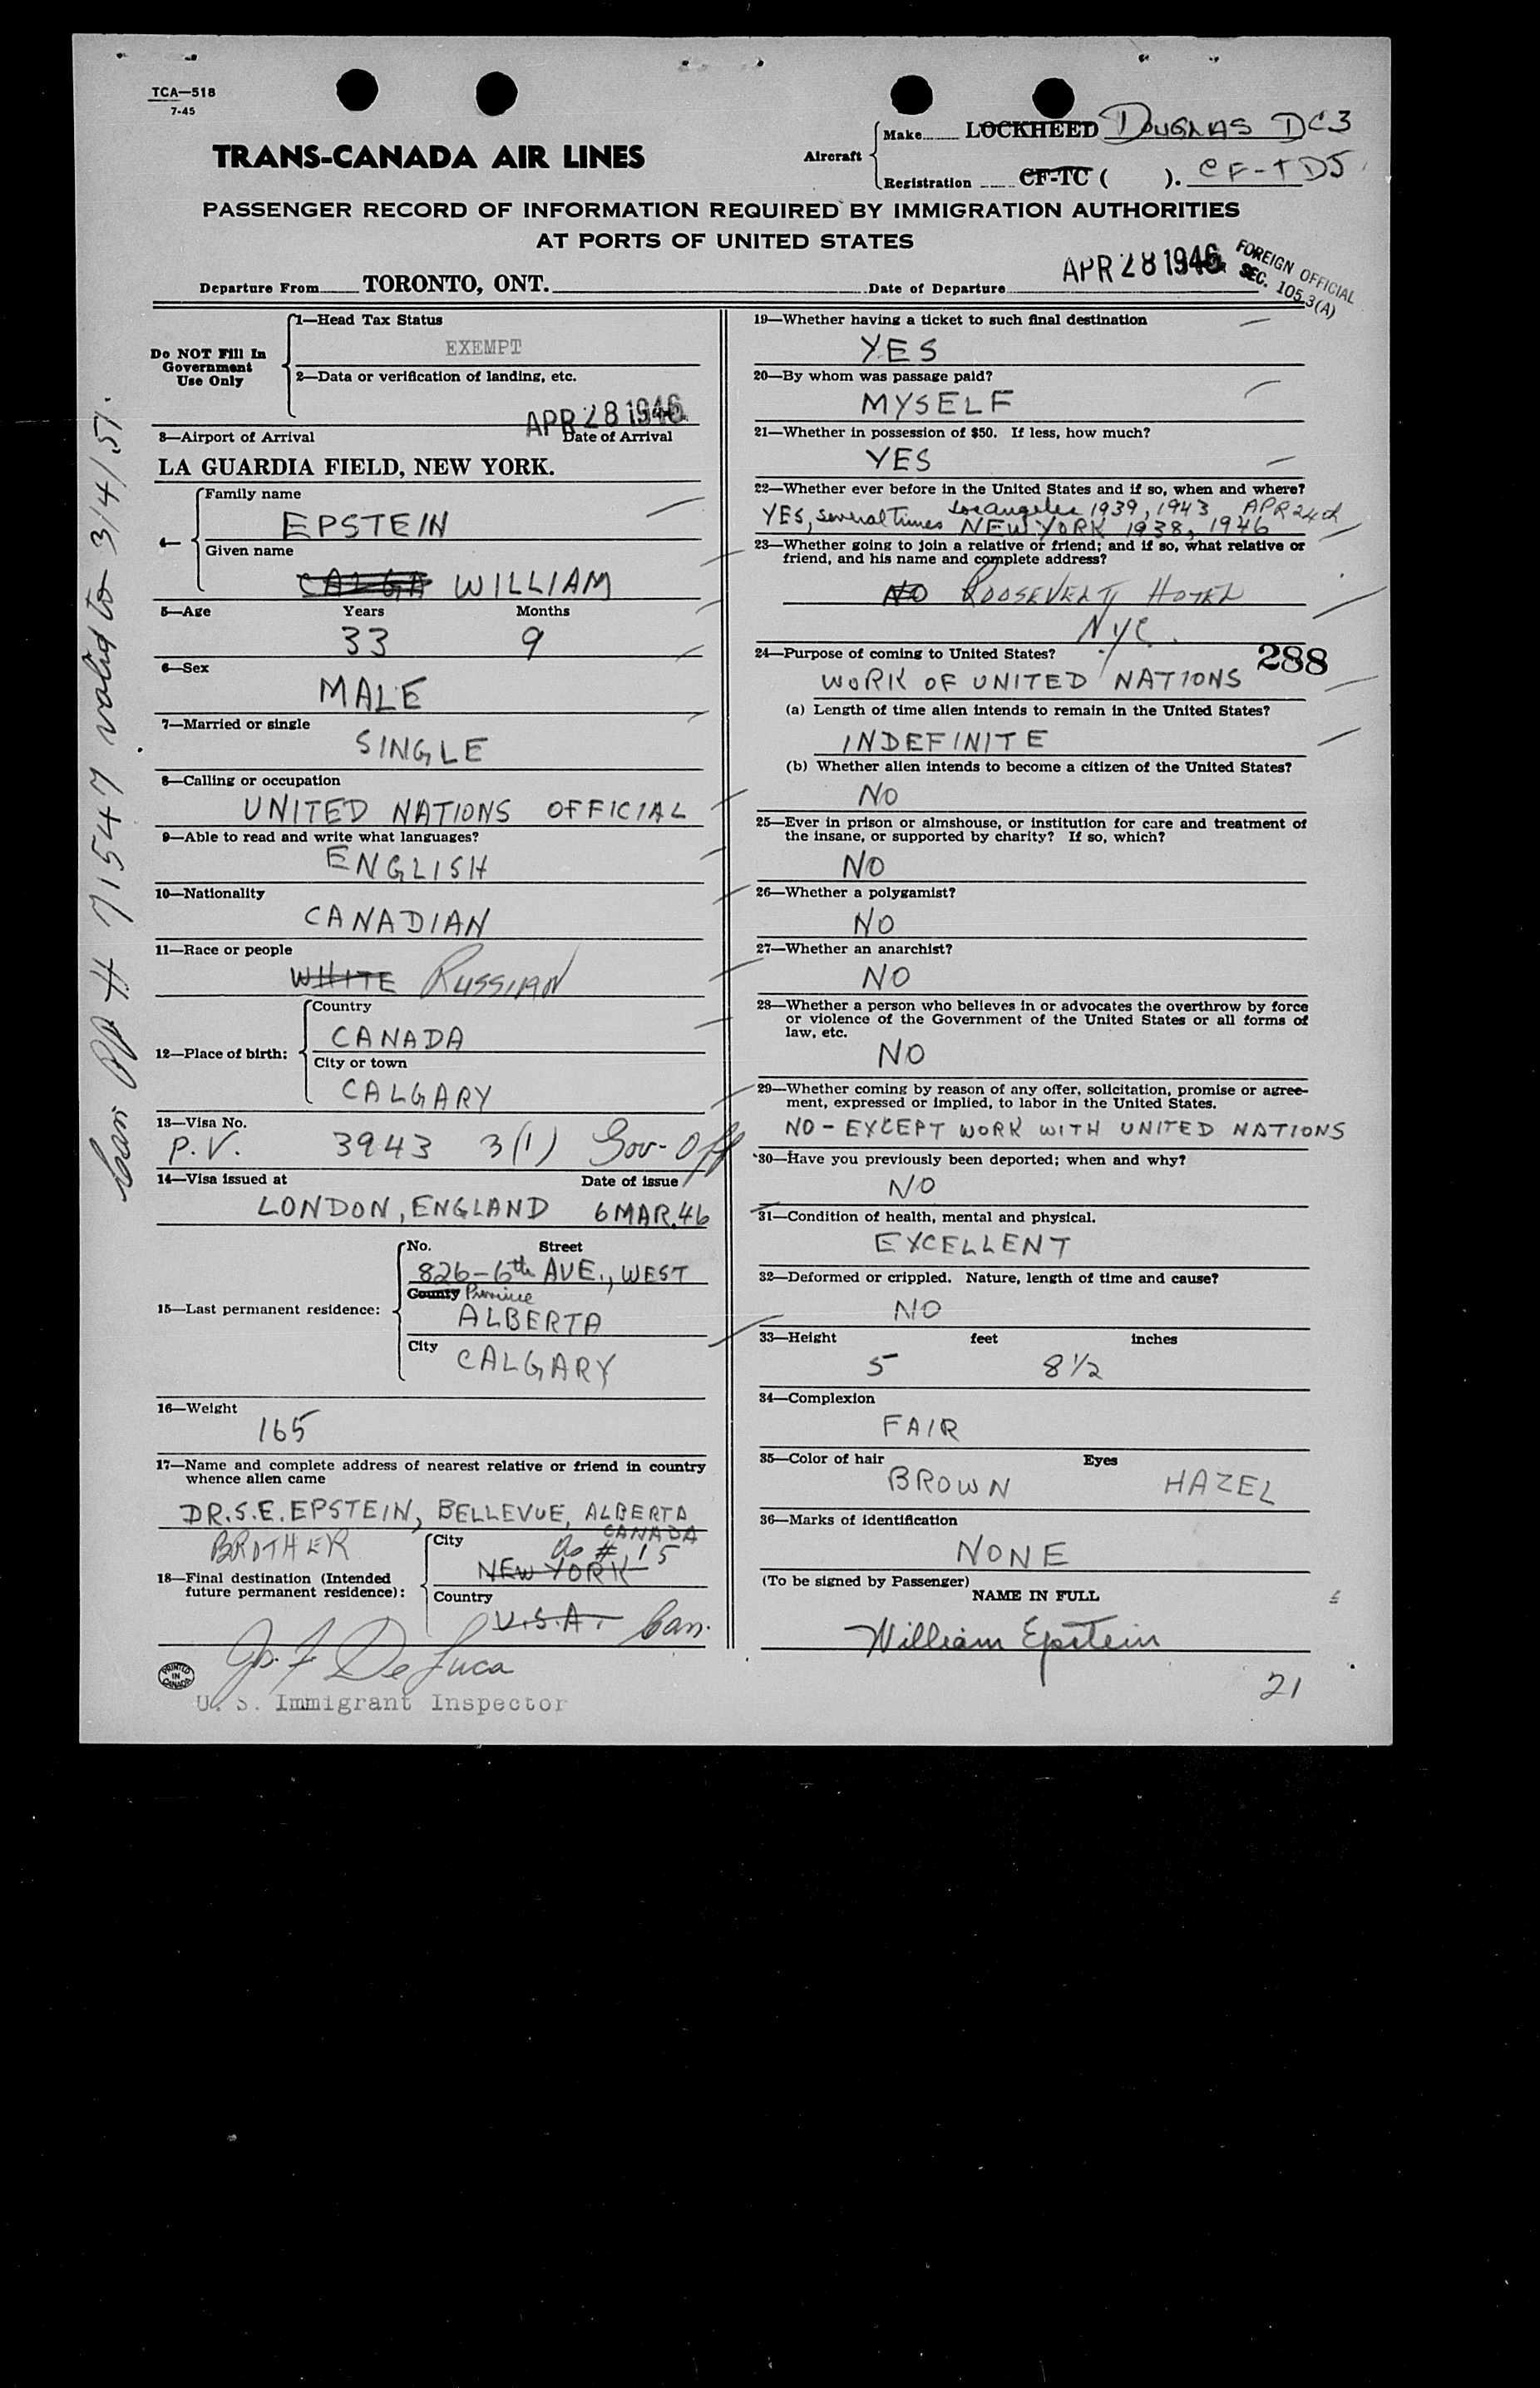 TCA—518
7-45
TRANS-CANADA AIR LINES
Aircraft
Make LOCKHEED DOUGLAS DC3
Registration CF-TC ( ). CF-TDJ
PASSENGER RECORD OF INFORMATION REQUIRED BY IMMIGRATION AUTHORITIES
AT PORTS OF UNITED STATES
Departure From TORONTO, ONT. Date of Departure APR 28 1946
FOREIGN OFFICIAL
SEC. 105.3(A)
Do NOT Fill In
Government
Use Only
1—Head Tax Status
EXEMPT
2—Data or verification of landing, etc.
APR 28 1946
3—Airport of Arrival Date of Arrival
LA GUARDIA FIELD, NEW YORK.
4—
Family name
EPSTEIN
Given name
CALGA WILLIAM
5—Age Years Months
33 9
6—Sex
MALE
7—Married or single
SINGLE
8—Calling or occupation
UNITED NATIONS OFFICIAL
9—Able to read and write what languages?
ENGLISH
10—Nationality
CANADIAN
11—Race or people
WHITE RUSSIAN
12—Place of birth:
Country
CANADA
City or town
CALGARY
13—Visa No.
P.V. 3943 3(1) Gov-Off
14—Visa issued at Date of issue
LONDON, ENGLAND 6 MAR. 46
15—Last permanent residence:
No. Street
826-6th AVE., WEST
County Province
ALBERTA
City
CALGARY
16—Weight
165
17—Name and complete address of nearest relative or friend in country
whence alien came
DR. S. E. EPSTEIN, BELLEVUE, ALBERTA
CANADA
BROTHER
18—Final destination (Intended
future permanent residence):
City
as # 15
NEW YORK
Country
U.S.A. Can.
Jo. F De Luca
U. S. Immigrant Inspector
PRINTED
IN
CANADA
Can PP # 71547 valid to 3/4/51.
19—Whether having a ticket to such final destination
YES
20—By whom was passage paid?
MYSELF
21—Whether in possession of $50. If less, how much?
YES
22—Whether ever before in the United States and if so, when and where?
Los angeles 1939, 1943 APR 24th
YES, several times NEW YORK 1938, 1946
23—Whether going to join a relative or friend; and if so, what relative or
friend, and his name and complete address?
NO ROOSEVELT HOTEL
NYC.
288
24—Purpose of coming to United States?
WORK OF UNITED NATIONS
(a) Length of time alien intends to remain in the United States?
INDEFINITE
(b) Whether alien intends to become a citizen of the United States?
NO
25—Ever in prison or almshouse, or institution for care and treatment of
the insane, or supported by charity? If so, which?
NO
26—Whether a polygamist?
NO
27—Whether an anarchist?
NO
28—Whether a person who believes in or advocates the overthrow by force
or violence of the Government of the United States or all forms of
law, etc.
NO
29—Whether coming by reason of any offer, solicitation, promise or agree-
ment, expressed or implied, to labor in the United States.
NO - EXCEPT WORK WITH UNITED NATIONS
30—Have you previously been deported; when and why?
NO
31—Condition of health, mental and physical.
EXCELLENT
32—Deformed or crippled. Nature, length of time and cause?
NO
33—Height feet inches
5 8 1/2
34—Complexion
FAIR
35—Color of hair Eyes
BROWN HAZEL
36—Marks of identification
NONE
(To be signed by Passenger)
NAME IN FULL
William Epstein
21